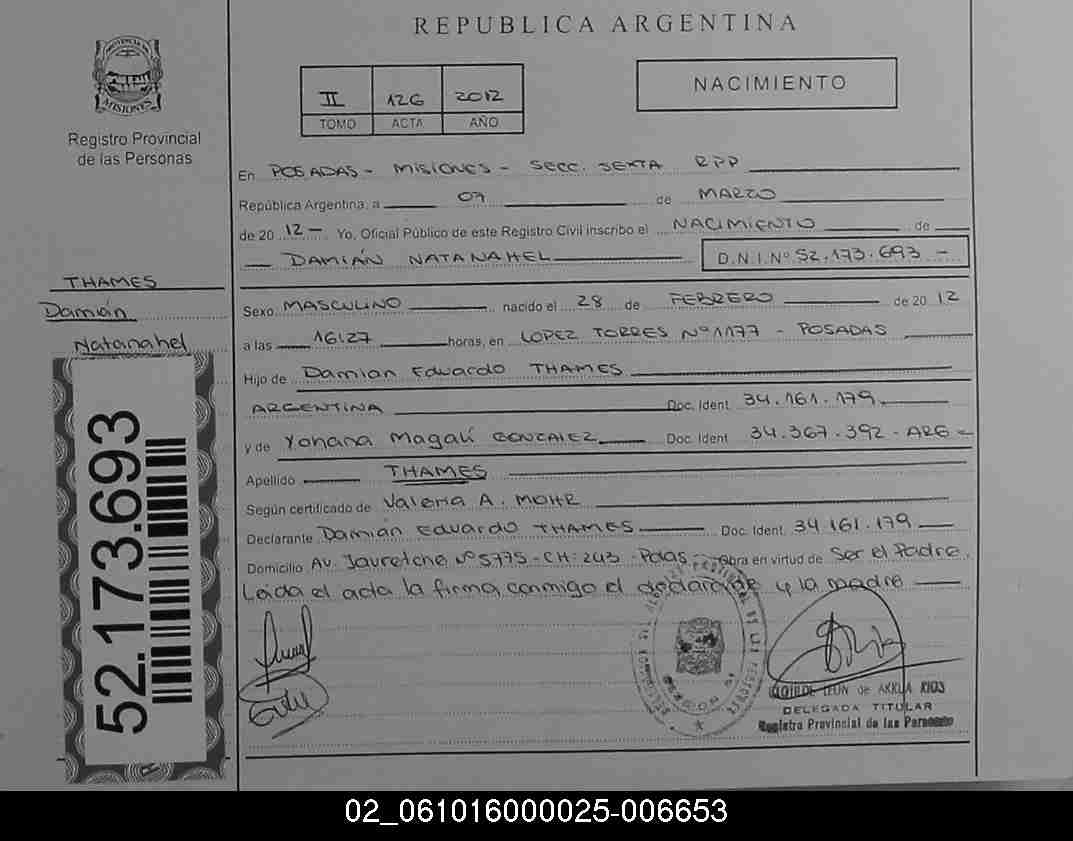 REPUBLICA ARGENTINA
PROVINCIA DE MISIONES
Registro Provincial
de las Personas
II 126 2012
TOMO ACTA AÑO
NACIMIENTO
En POSADAS - MISIONES - SECC. SEXTA RPP
República Argentina, a 07 de MARZO
de 2012 - Yo, Oficial Público de este Registro Civil inscribo el NACIMIENTO de
DAMIÁN NATANAHEL D.N.I.Nº 52.173.693 -
THAMES
Damián
Natanahel
52.173.693
Sexo MASCULINO nacido el 28 de FEBRERO de 2012
a las 16:27 horas, en LOPEZ TORRES Nº 1177 - POSADAS
Hijo de Damian Eduardo THAMES
ARGENTINA Doc. Ident 34.161.179
y de Yohana Magalí GONZALEZ Doc. Ident 34.367.392 - ARG -
Apellido THAMES
Según certificado de Valeria A. MOHR
Declarante Damián Eduardo THAMES Doc. Ident. 34.161.179
Domicilio Av. Jauretche Nº 5775 - CH: 243 - Pdas - Obra en virtud de Ser el Padre.
Leída el acta la firma conmigo el declarante y la madre
DE AKKLA RIOS
DELEGADA TITULAR
Registro Provincial de las Personas
02_061016000025-006653